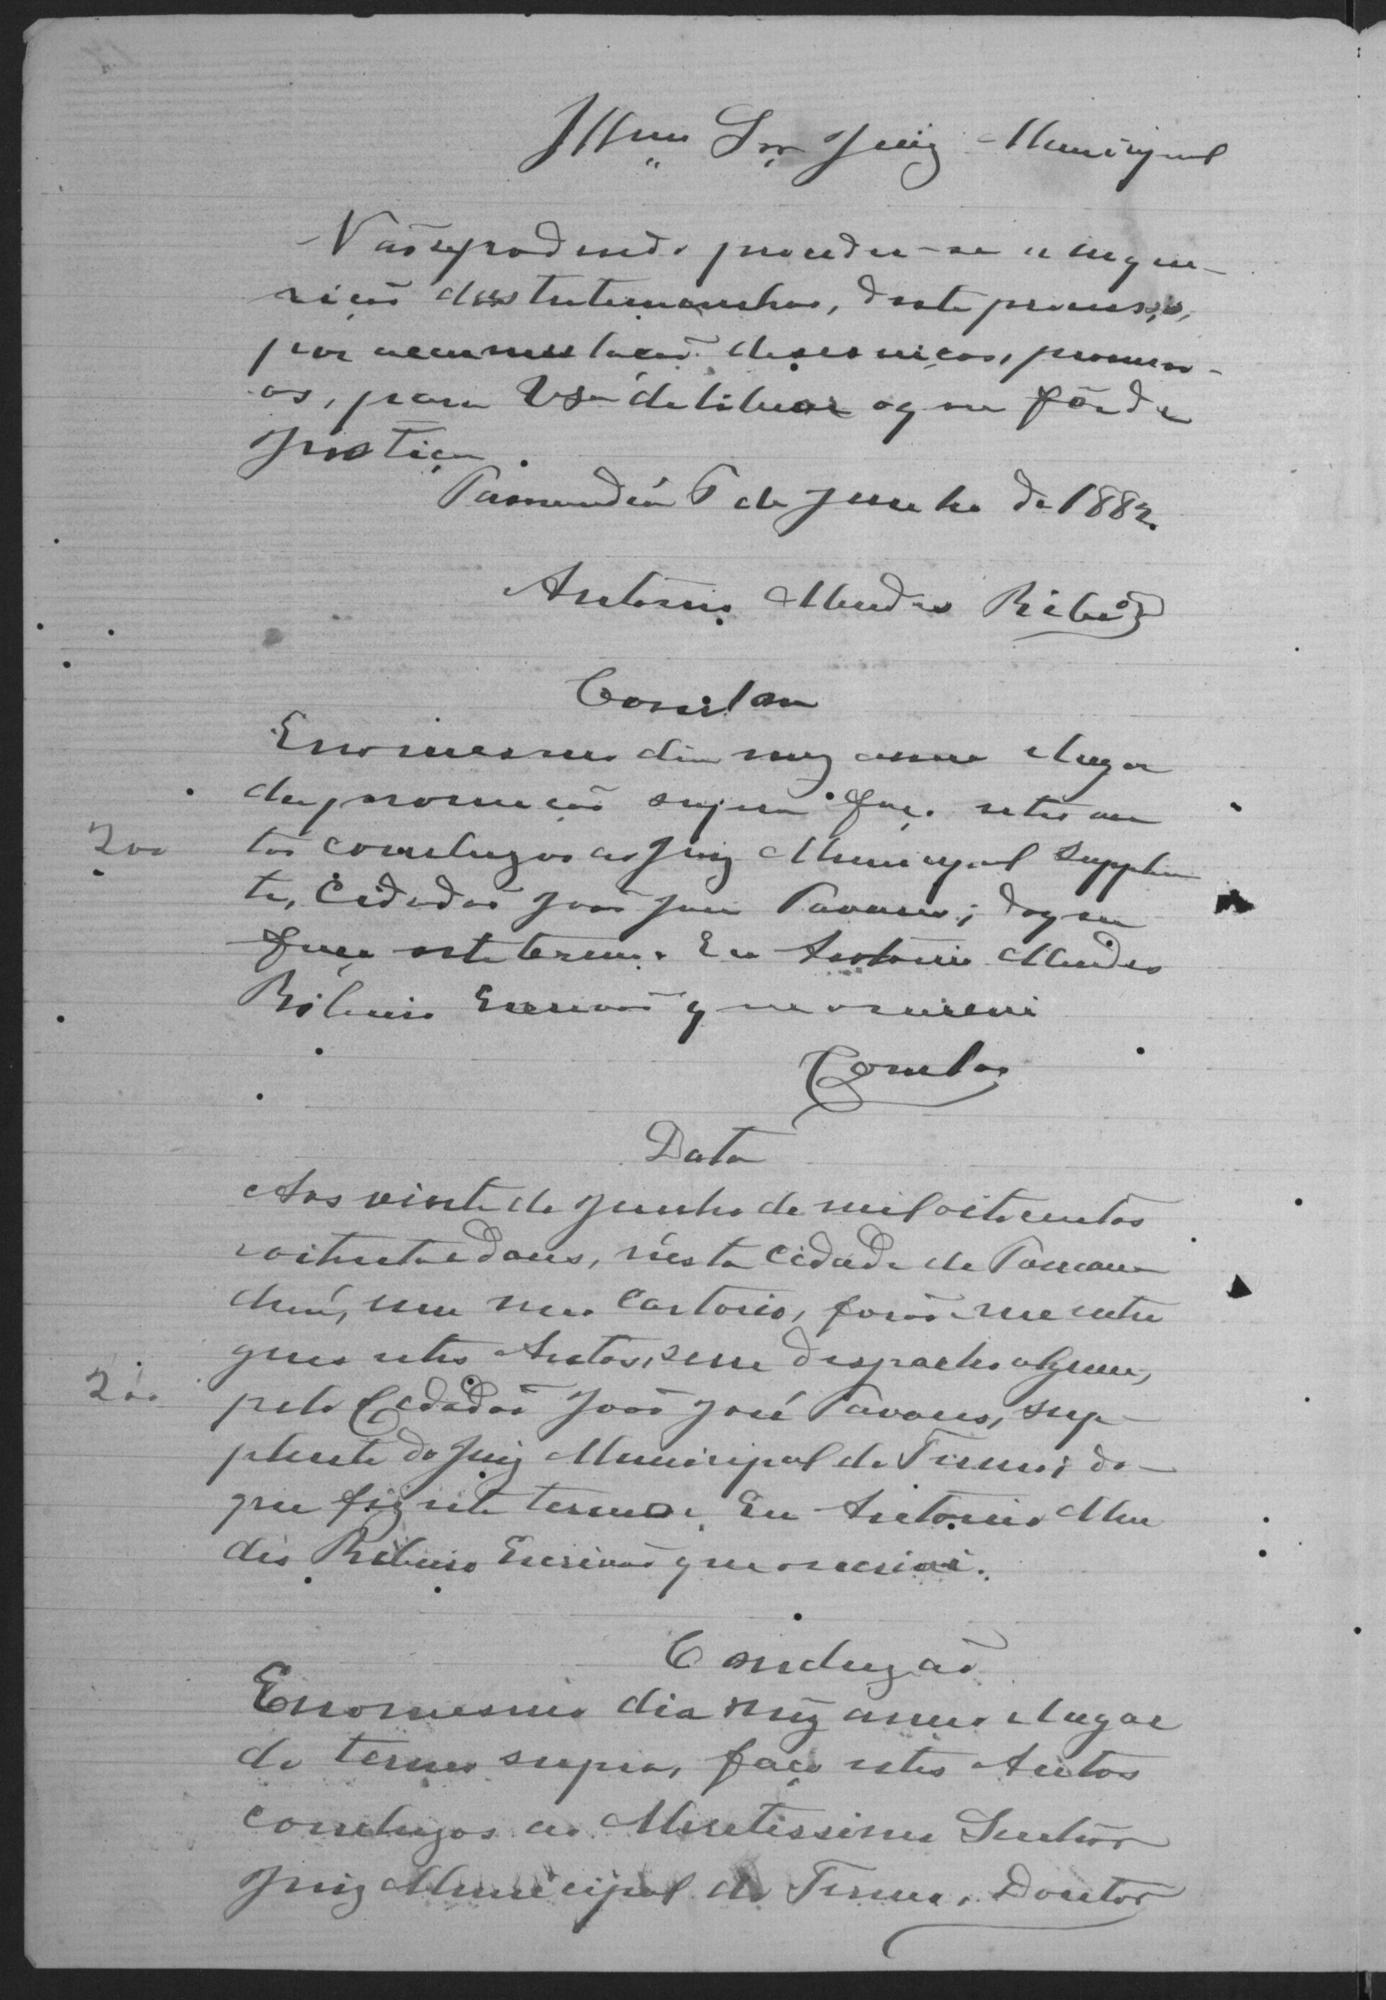 Illmo Snr Juiz Municipal
Não se podendo proceder-se a inque-
rição das testemunhas, deste processo,
por accumulação de serviços, promovo
os, para VSa deliberar o que fôr de
Justiça.
Tamanduá 5 de Junho de 1882.
Antonio Mendes Ribeiro
Conclsam
E no mesmo dia mez anno e lugar
da promoção supra faço estes au
200
tos concluzos ao Juiz Municipal Supplen
te, Cidadão João José Tavares; do que
faço este termo. Eu Antonio Mendes
Ribeiro Escrivão que o escrevi
Conclos
Data
Aos vinte de Junho de mil oitocentos
e oitenta e dous, n'esta Cidade de Taman
duá, em meu Cartorio, forão me entre
gues estes Autos, sem despacho algum,
200
pelo Cidadão João José Tavares, sup-
plente do Juiz Municipal do Termo; do
que fiz este termo. Eu Antonio Men
des Ribeiro Escrivão que o escrivi.
Concluzão
E no mesmo dia mez anno e lugar
do termo supra, faço estes Autos
concluzos ao Meretissimo Senhor
Juiz Municipal do Termo, Doutor